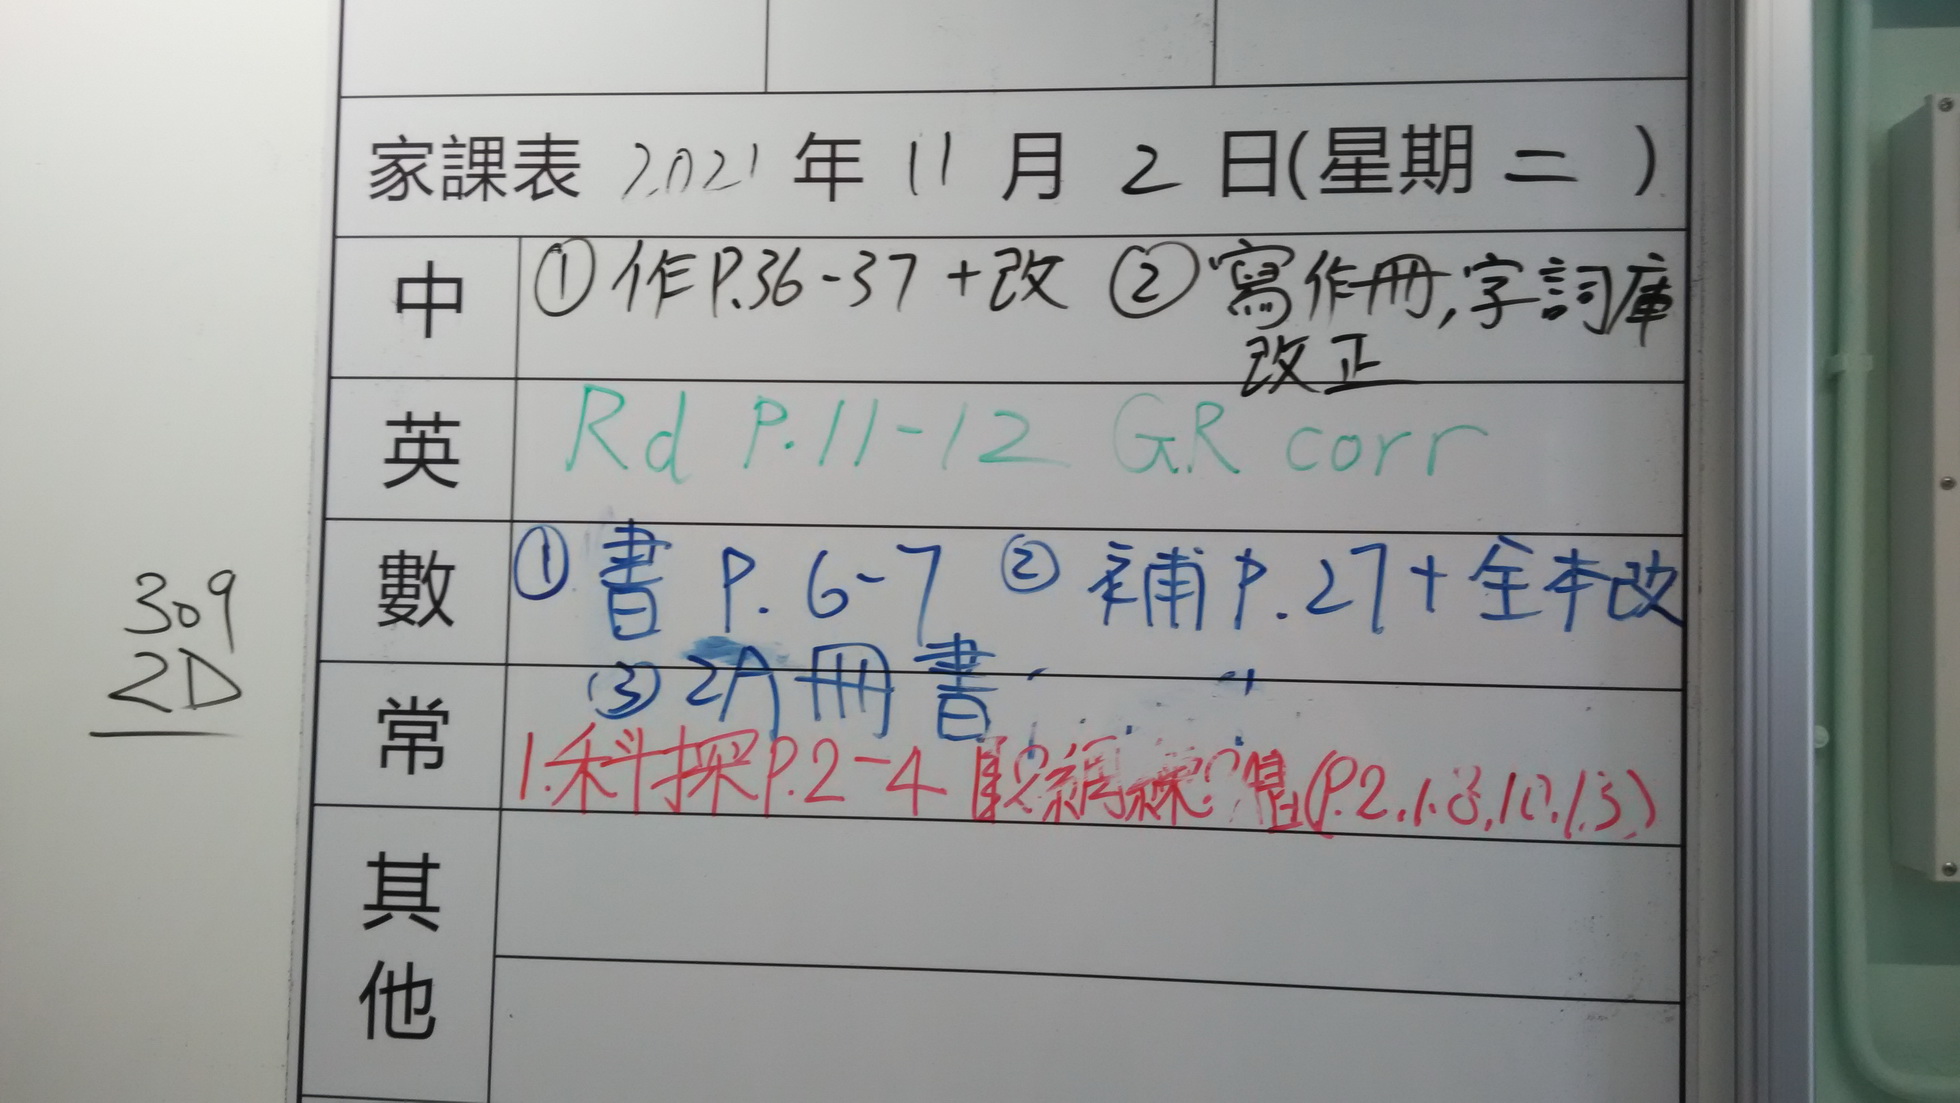 家課表 2021 年 11 月 2 日(星期二)
中 ①作P.36-37+改 ②寫作冊,字詞庫
改正
英 Rd P.11-12 GR corr
數 ①書 P.6-7 ②補P.27+全本改
③2A冊書
常 1.科探P.2-4
其他
309
2D